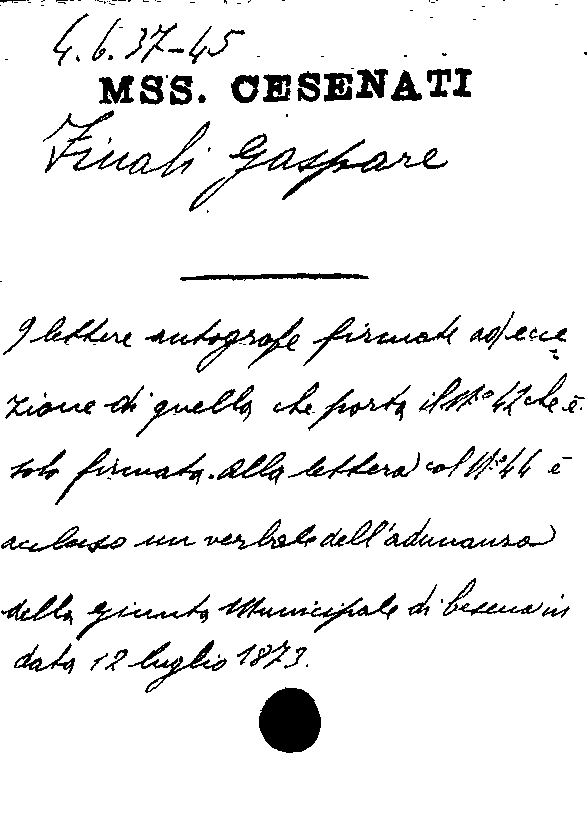 4.6.37-45
MSS. CESENATI
Finali Gaspare
9 lettere autografe firmate ad ecce
zione di quella che porta il N° 42 che è
solo firmata. Alla lettera col N° 44 è
accluso un verbale dell'adunanza
della Giunta Municipale di Cesena in
data 12 luglio 1873.